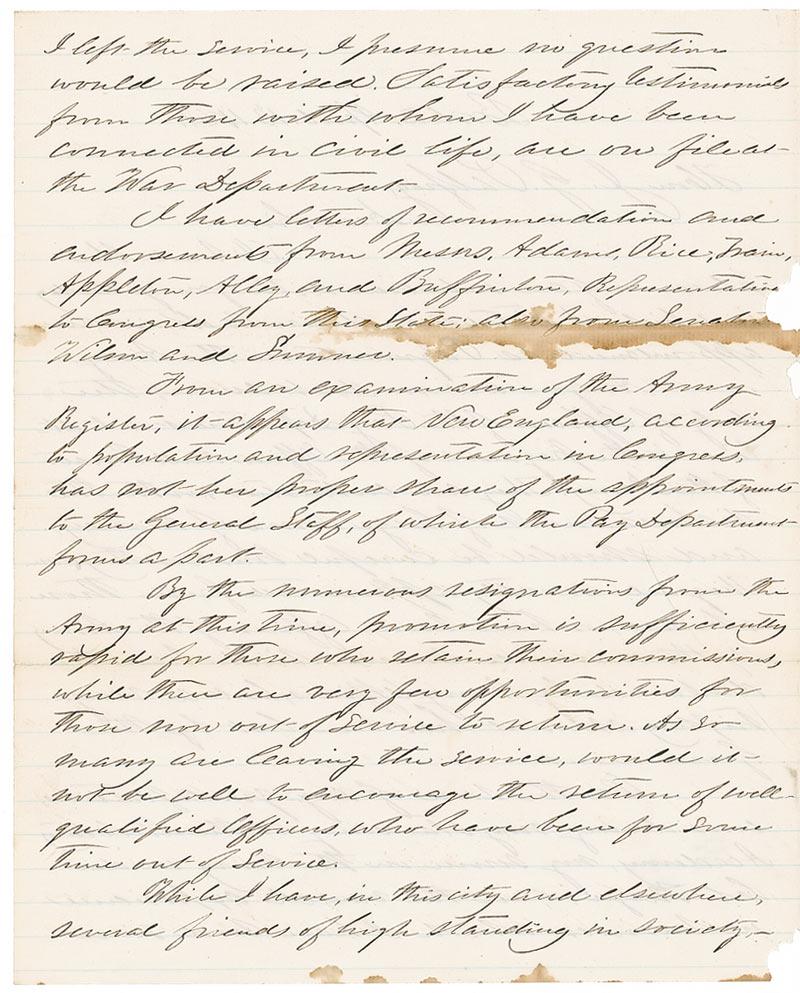 I left the service, I presume no question
would be raised. Satisfactory testimonials
from those with whom I have been
connected in civil life, are on file at
the War Department.
I have letters of recommendation and
endorsements from Messrs. Adams, Rice, Train,
Appleton, Alley, and Buffinton, Representatives
to Congress from this State; also from Senators
Wilson and Sumner.
From an examination of the Army
Register, it appears that New England, according
to population and representation in Congress,
has not her proper share of the appointments
to the General Staff, of which the Pay Department
forms a part.
By the numerous resignations from the
Army at this time, promotion is sufficiently
rapid for those who retain their commissions,
while there are very few opportunities for
those now out of service to return. As so
many are leaving the service, would it
not be well to encourage the return of well-
qualified Officers, who have been for some
time out of service.
While I have, in this city and elsewhere,
several friends of high standing in society,—